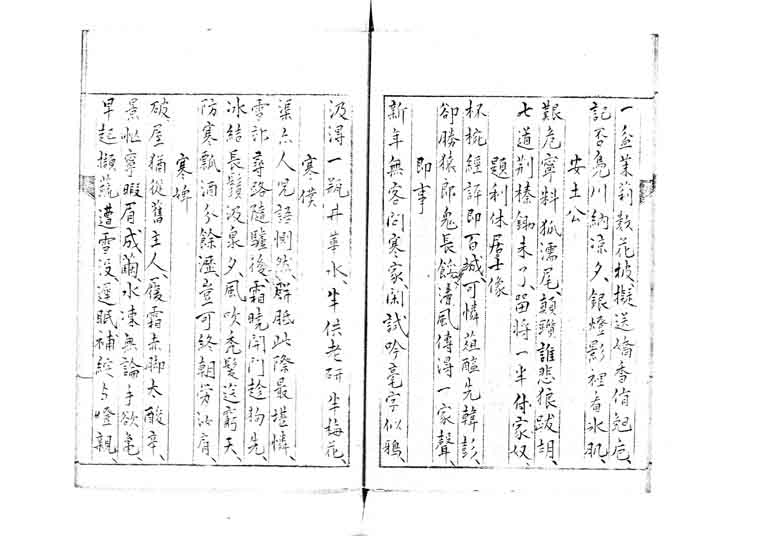 一盆茉莉数花披、擬送嬌香侑兕卮、
記否鳬川納凉夕、銀燈影裡看氷肌、
安土公
艱危寧料狐濡尾、顛躓誰悲狼跋胡、
七道荊榛鋤未了、留将一半付家奴、
題利休居士像
杯椀經評即百、可憐葅醢先韓彭、
卻勝猿郎鬼長餒、清風傳得一家聲、
即事
新年無客問寒家、閑試吟毫字似鴉、
汲得一瓶井華水、半供老研半梅花、
寒僕
渠亦人児語惻然、胼胝此際最堪憐、
雪尋路隨驢後、霜曉開門趁狗先、
氷結長鬚汲泉夕、風吹禿髪送窮天、
防寒瓢酒分餘瀝、豈可終朝労汝肩、
寒婢
破屋猶從舊主人、履霜赤脚太酸辛、
景忙寧暇眉成繭、水凍無論手欲亀、
早起擷蔬遭雪没、遅眠補綻与燈親、